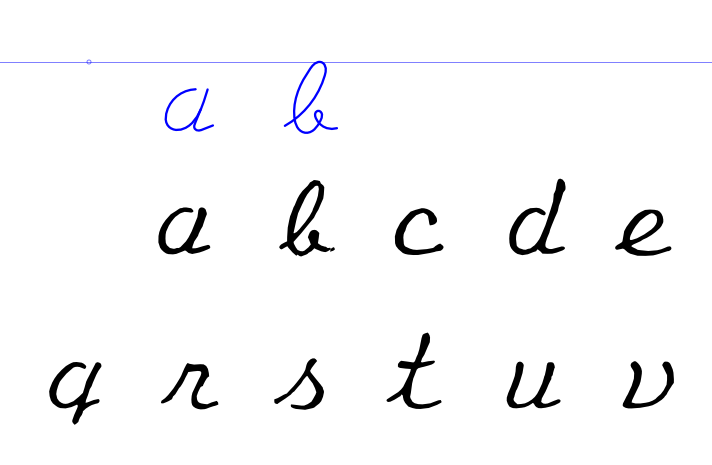 a b
a b c d e
q r s t u v